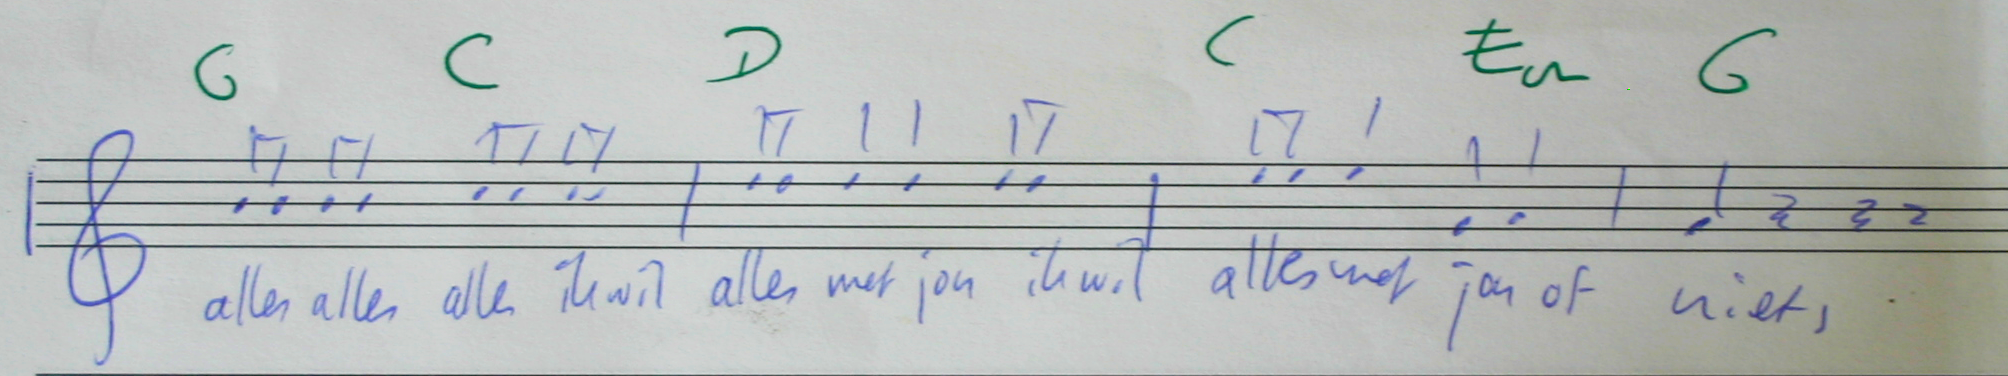 G C D C Em G
alles alles alles ik wil alles met jou ik wil alles met jou of niets